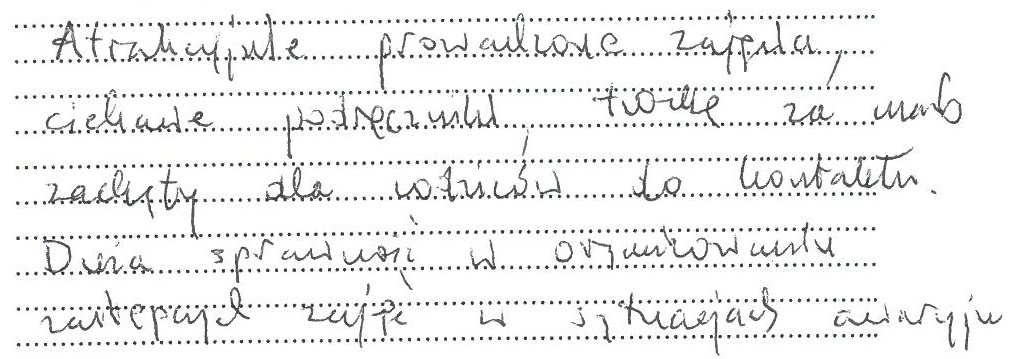 Atrakcyjnie prowadzone zajęcia,
ciekawe podręczniki, troszkę za mało
zachęty dla rodziców do kontaktu.
Duża sprawność w organizowaniu
zastępczych zajęć w sytuacjach awaryjn